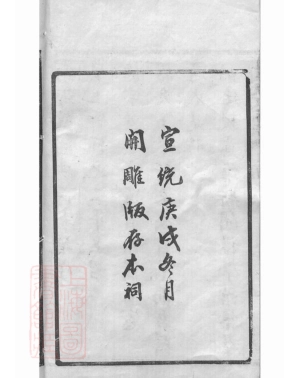 宣統庚戌冬月
開雕版存本祠